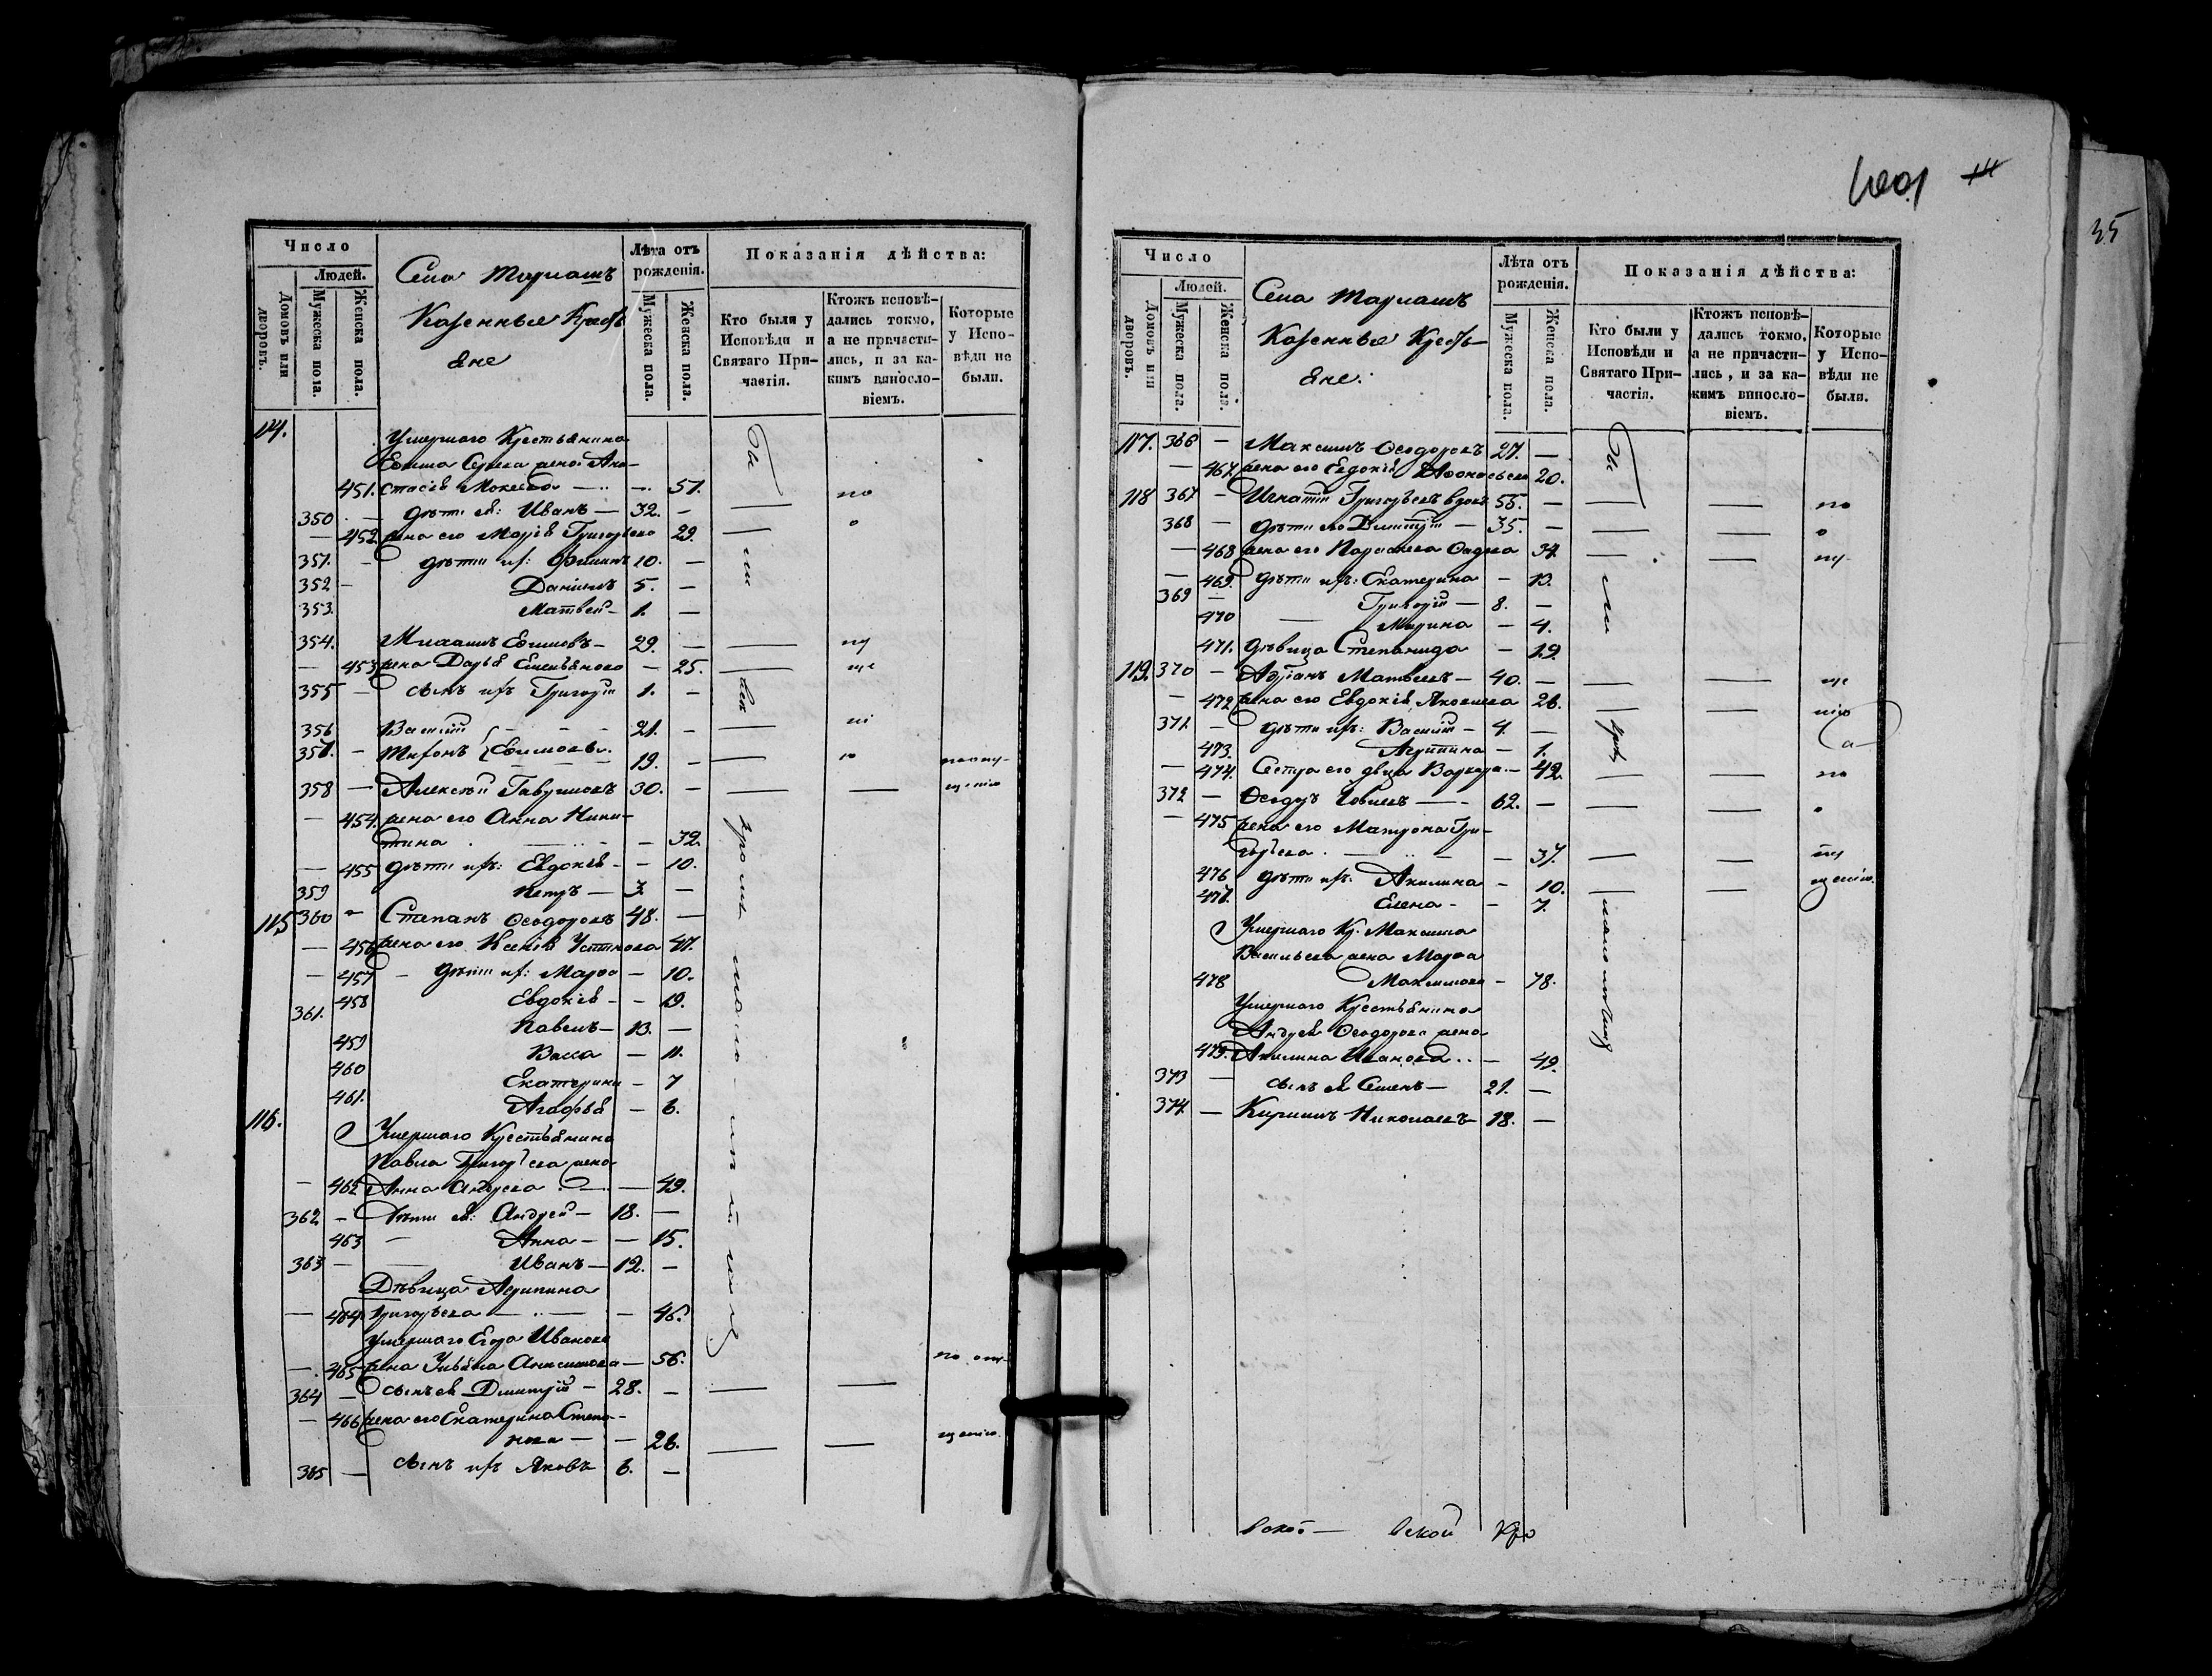 Число
Людей.
Домовъ или дворовъ.
Мужеска пола.
Женска пола.
Села
Казенные Кресть
яне
Лѣта отъ рожденія.
Мужеска пола.
Женска пола.
Показанія дѣйства:
Кто были у Исповѣди и Святаго Причастія.
Ктожъ исповѣдались токмо, а не причастились, и за какимъ винословіемъ.
Которые у Исповѣди не были.
Умершаго Крестьянина
жена Ана-
451. стасія — — 51.
350 — дѣти ея: Иванъ — 32. —
— 452 жена его Марія Григорьева 29.
351. — дѣти их: Филипъ 10. —
352 — Даніилъ 5. —
353. Матвей — 1. —
354. Михаилъ Ефимовъ — 29. —
— 453 жена Дарья Емельянова — 25.
355 — сынъ ихъ Григорій 1. —
356 Василій — — — 21. —
357. — Тифонъ Ефимовы. 19. —
358 — Алексѣй Гаврииловъ 30. —
— 454. жена его Анна Ники-
тина — 32.
— 455 дѣти ихъ: Евдокія — — 10.
359 Петръ — 3. —
115 360 — Степанъ Ѳеодоровъ 48. —
— 456 жена его Ксенія Устинова 47.
— 457 — дѣти их: Марѳа — 10.
458 Евдокія — — 19.
361. Павелъ — 13. —
459 Васса — 11.
460 Екатерина — 7
461. Агафья — 6.
116. Умершаго Крестьянина
Павла Григорьева жена
— 462 Анна Андреева — — 49.
362 — Дѣти ея: Андрей — 18. —
463 — Анна — — 15.
363 — — Иванъ — 12. —
Дѣвица Агрипина
— 464. Григорьева — — — 46.
Умершаго Егора Иванова
— 465 жена Ульяна Анисимова — 56.
364 — сынъ ея Димитрій — 28. —
— 466 жена его Екатерина Степа-
нова — — 26.
365 — сынъ ихъ Яковъ 6. —
35
Число
Людей.
Домовъ или дворовъ.
Мужеска пола.
Женска пола.
Села
Казенные Кресть-
яне.
Лѣта отъ рожденія.
Мужеска пола.
Женска пола.
Показанія дѣйства:
Кто были у Исповѣди и Святаго Причастія.
Ктожъ исповѣдались токмо, а не причастились, и за какимъ винословіемъ.
Которые у Исповѣди не были.
117. 366 — Максимъ Ѳеодоровъ 27. —
— 467. жена его Евдокія Аѳонасьева 20.
118 367 — Игнатій Григорьевъ вдовъ 55. —
368 — дѣти его Димитрій — 35. —
— 468 жена его Параскева 34.
— 469. дѣти ихъ: Екатерина — 13.
369 — Григорій — 8. —
470 — Марина — 4.
471. дѣвица Степанида — 19.
119. 370 — Адріанъ Матвеевъ — 40. —
— 472 жена его Евдокія Яковлева 26.
371. — дѣти ихъ: Василій — 4. —
473. Агрипина — 1.
— 474. Сестра его двца Варвара. — 42.
372 — Ѳеодоръ — 62. —
— 475 жена его Матрона Гри-
горьева. — — — 37.
476 дѣти ихъ: Акилина — 10.
477. Елена — — 7.
Умершаго Кр. Максима
Васильева жена Марѳа
478 Максимова — 78.
Умершаго Крестьянина
Андрея Ѳеодорова жена
479. Акилина Иванова — 49.
373 — сынъ ея Семенъ — 21. —
374. — Кириллъ Николаевъ 18. —